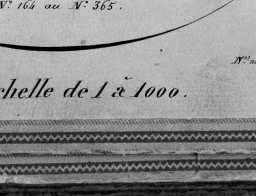 N.º 164 au N.º 365.
chelle de 1 à 1000.